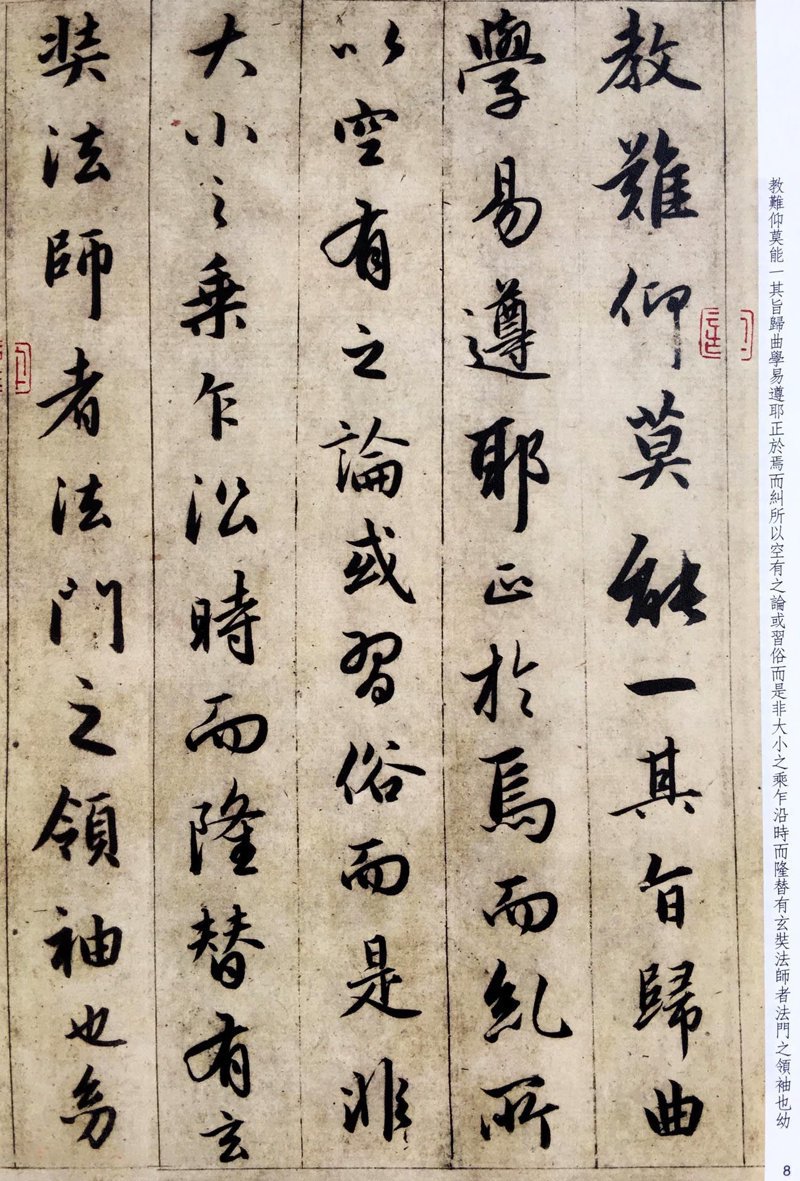 教難仰莫能一其旨歸曲
學易遵耶正於焉而糺所
以空有之論或習俗而是非
大小之乗乍沿時而隆替有玄
奘法師者法門之領袖也幼
教難仰莫能一其旨歸曲學易遵耶正於焉而糾所以空有之論或習俗而是非大小之乘乍沿時而隆替有玄奘法師者法門之領袖也幼
8